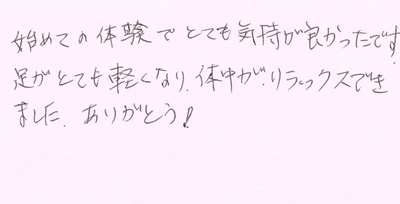 始めての体験でとても気持が良かったです
足がとても軽くなり、体中が、リラックスでき
ました、ありがとう!